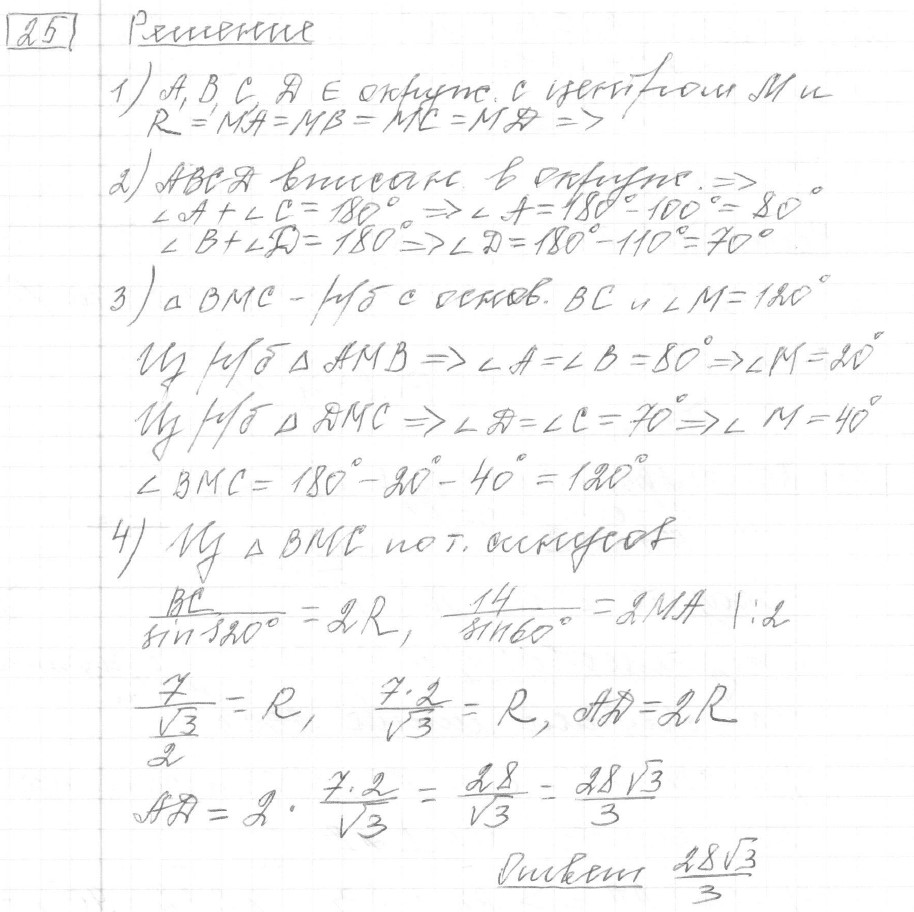 25 Решение
1) A, B, C, D ∈ окруж. с центром M и
R = MA = MB = MC = MD =>
2) ABCD вписан. в окруж. =>
∠A + ∠C = 180° => ∠A = 180° - 100° = 80°
∠B + ∠D = 180° => ∠D = 180° - 110° = 70°
3) △ BMC - р/б с основ. BC и ∠M = 120°
Из р/б △ AMB => ∠A = ∠B = 80° => ∠M = 20°
Из р/б △ DMC => ∠D = ∠C = 70° => ∠M = 40°
∠BMC = 180° - 20° - 40° = 120°
4) Из △ BMC по т. синусов
BC/sin120° = 2R, 14/sin60° = 2MA |:2
7/(√3/2) = R, 7·2/√3 = R, AD = 2R
AD = 2 · 7·2/√3 = 28/√3 = 28√3/3
Ответ 28√3/3